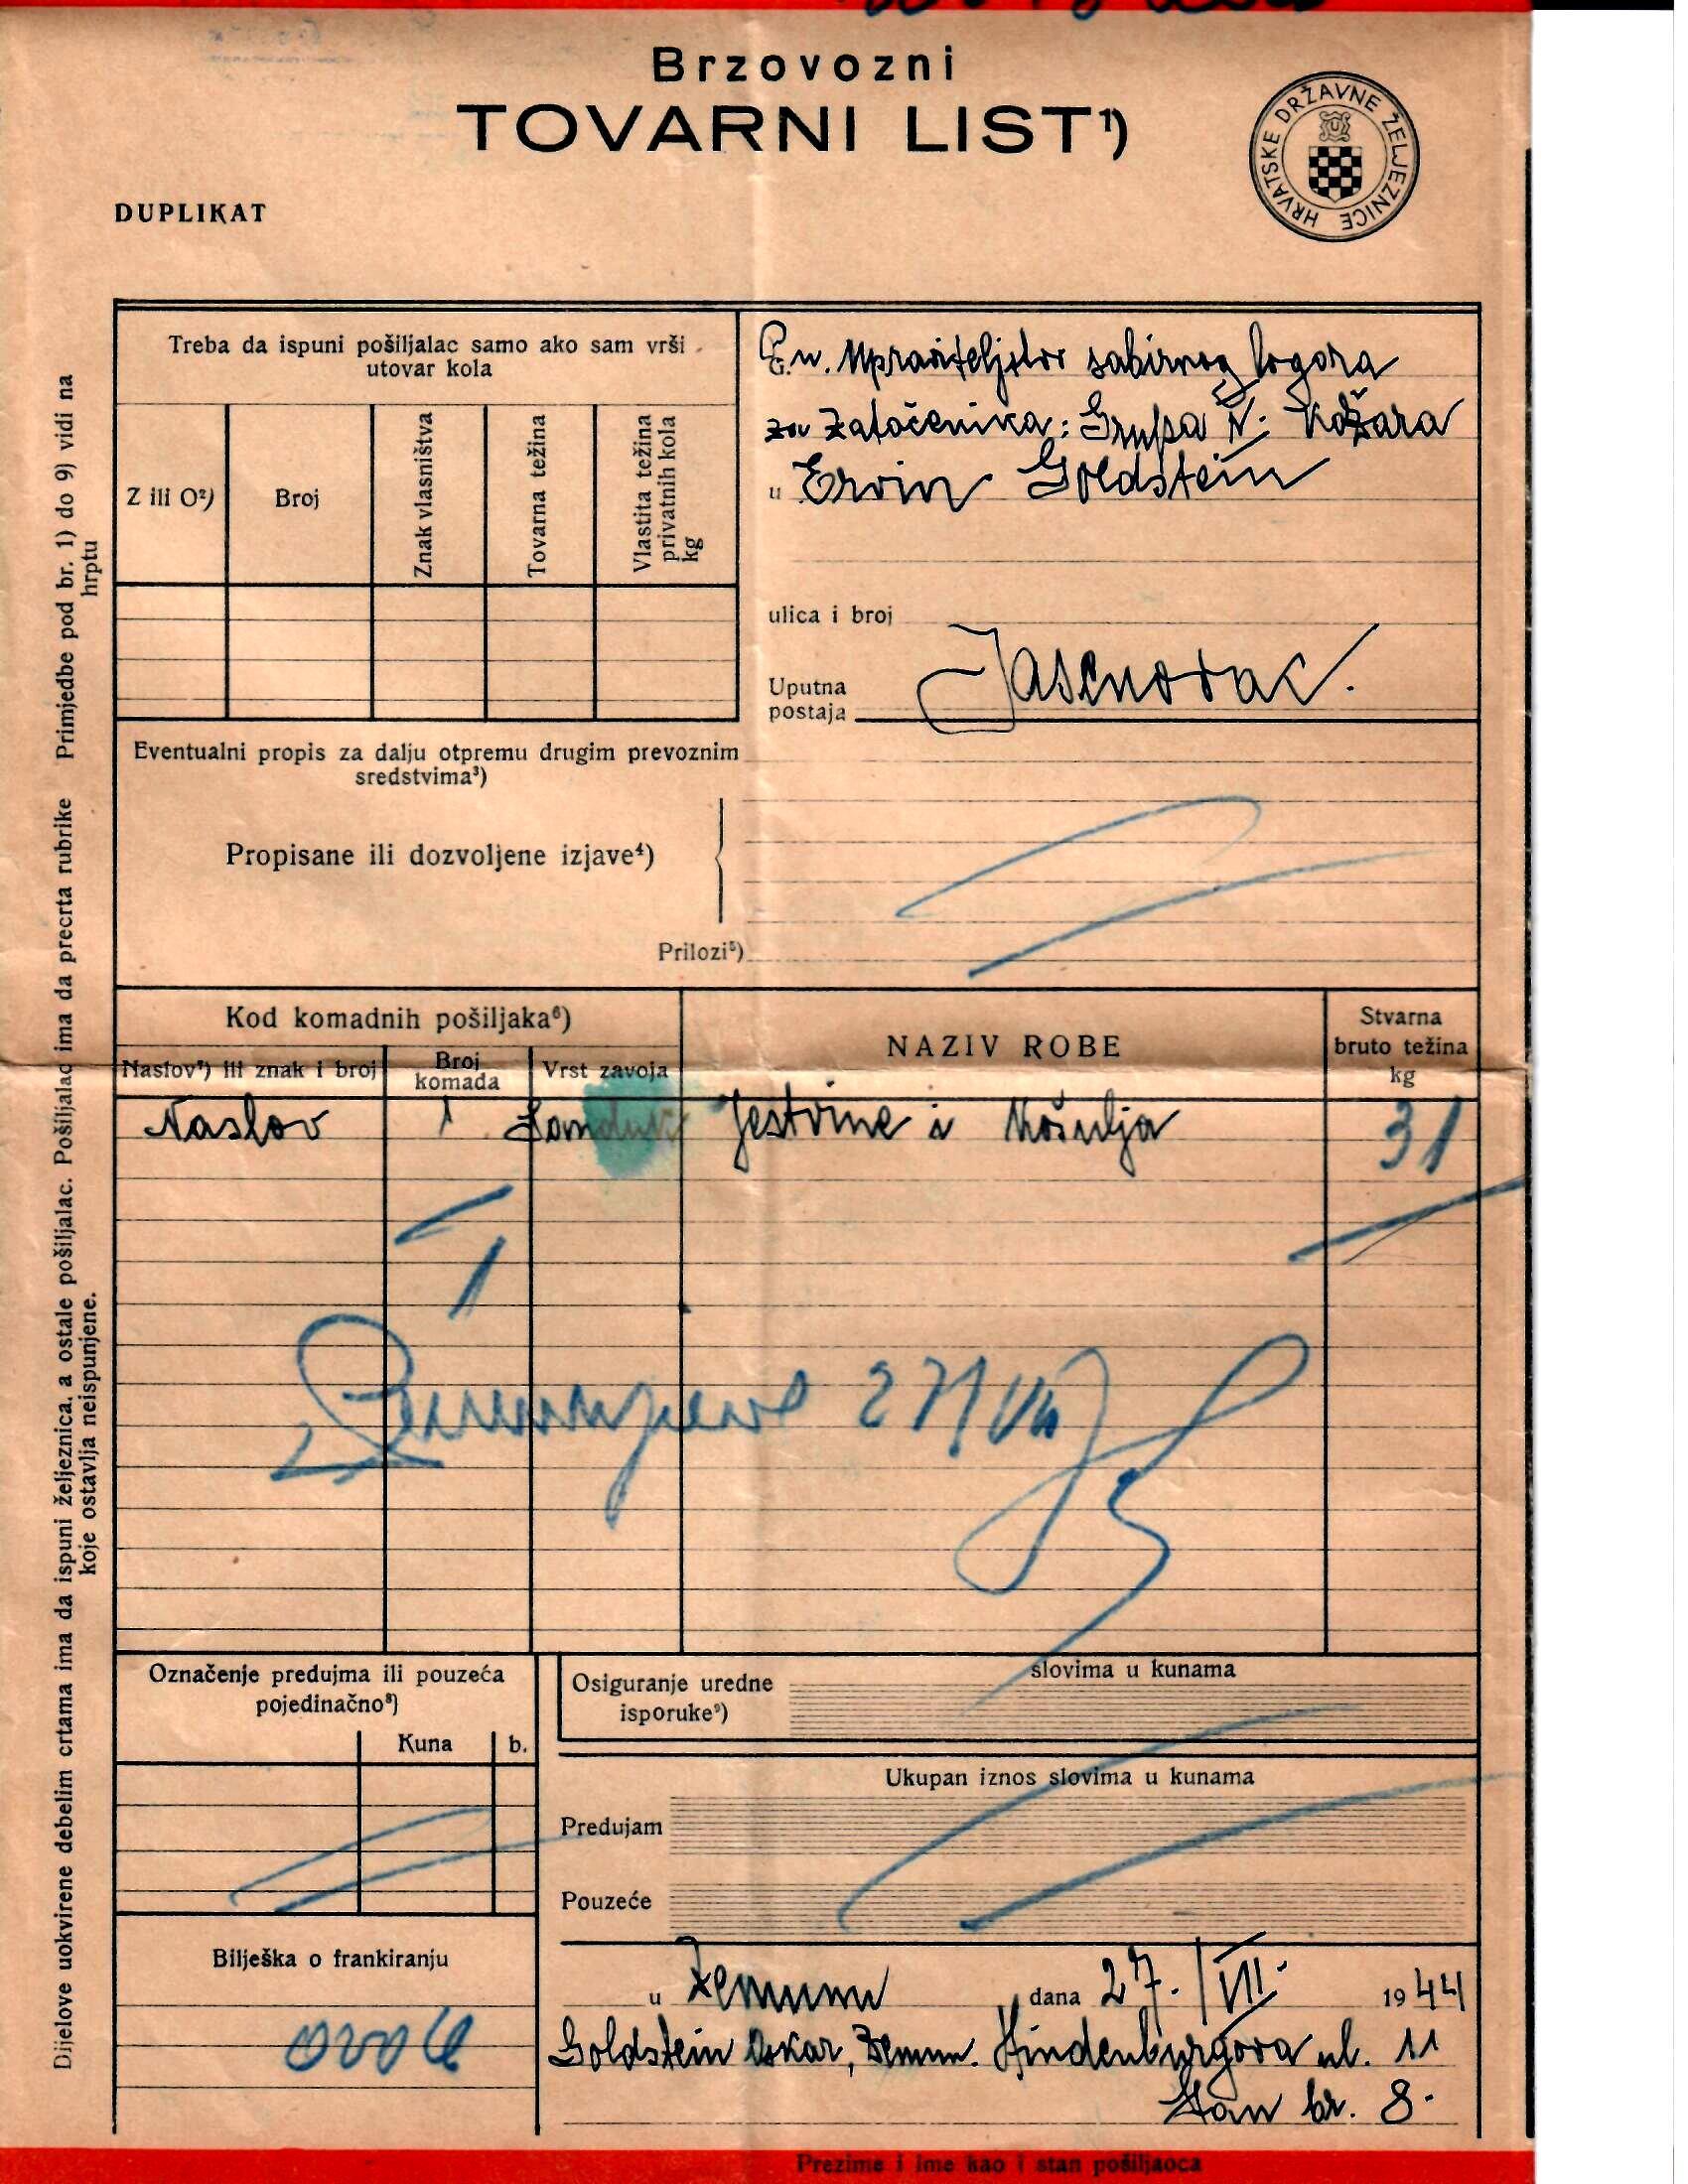 Brzovozni
TOVARNI LIST¹)
HRVATSKE DRŽAVNE ŽELJEZNICE
DUPLIKAT
Treba da ispuni pošiljalac samo ako sam vrši
utovar kola
Z ili O²)
Broj
Znak vlasništva
Tovarna težina
Vlastita težina
privatnih kola
kg
sabirnog logora
za zatočenika: Grupa Kožara
u Ervin Goldstein
ulica i broj
Uputna
postaja
Jasenovac.
Eventualni propis za dalju otpremu drugim prevoznim
sredstvima³)
Propisane ili dozvoljene izjave⁴)
Prilozi⁵)
Kod komadnih pošiljaka⁶)
Naslov⁷) ili znak i broj
Broj
komada
Vrst zavoja
NAZIV ROBE
Stvarna
bruto težina
kg
Naslov 1 Sanduk Jestvine i košulja 31
1
27/VII
Označenje predujma ili pouzeća
pojedinačno⁸)
Kuna b.
Osiguranje uredne
isporuke⁹)
slovima u kunama
Ukupan iznos slovima u kunama
Predujam
Pouzeće
Bilješka o frankiranju
u Zemunu dana 27./VII. 1944
Goldstein Oskar, Zemun. Hindenburgova ul. 11
Stan br. 8.
Prezime i ime kao i stan pošiljaoca
Dijelove uokvirene debelim crtama ima da ispuni željeznica, a ostale pošiljalac. Pošiljalac ima da precrta rubrike
koje ostavlja neispunjene.
Primjedbe pod br. 1) do 9) vidi na
hrptu